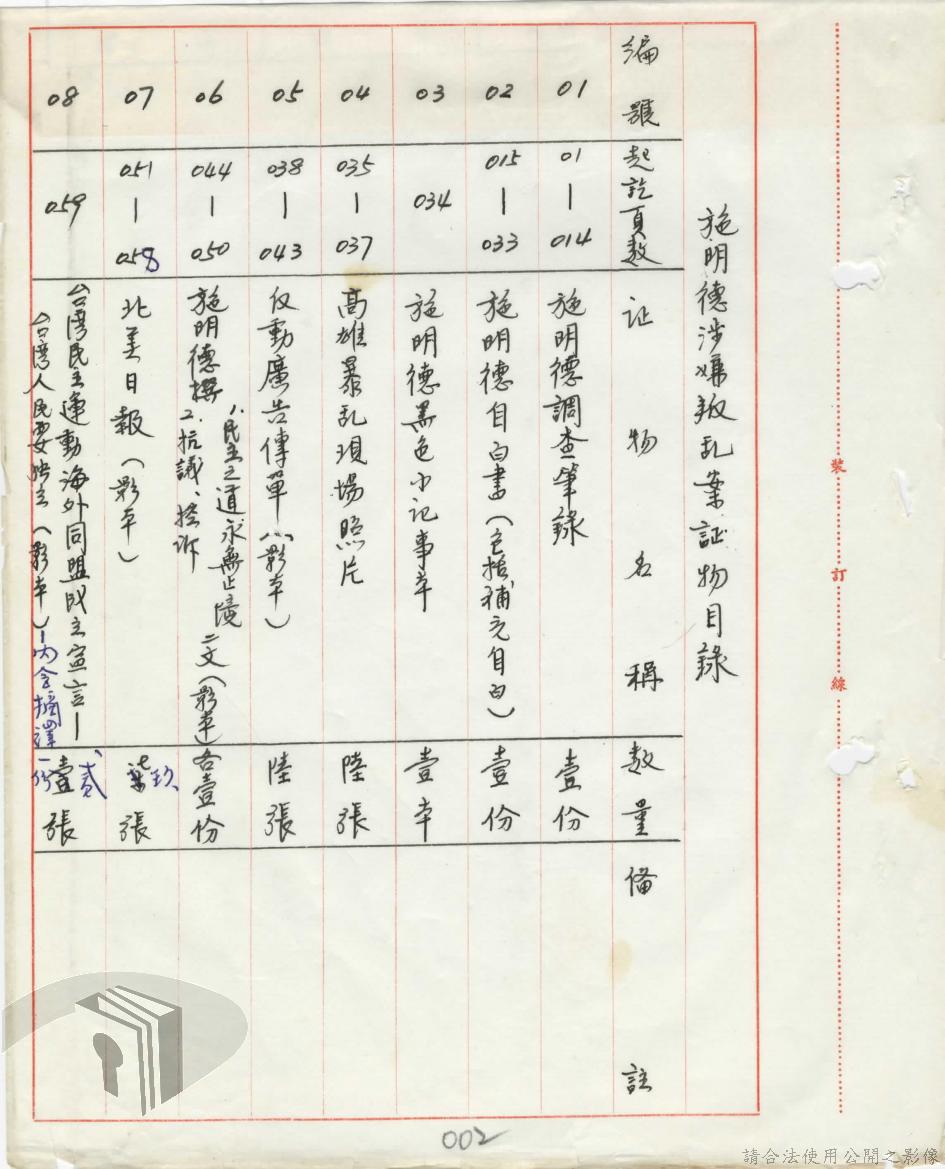 施明德涉嫌叛乱案証物目錄
編號 起訖頁数 证物名稱 数量 備註
01 01–014 施明德調查筆錄 壹份
02 015–033 施明德自白書（包括補充自白） 壹份
03 034 施明德黑色小記事本 壹本
04 035–037 高雄暴乱現場照片 陸張
05 038–043 反動廣告傳單（影本） 陸張
06 044–050 施明德撰 1.民主之道永無止境 2.抗議、控訴 二文（影本） 各壹份
07 051–058 北美日報（影本） 玖張
08 059 台湾民主運動海外同盟成立宣言—
台湾人民要独立（影本）—内含摘譯一份 貳張
裝訂線
002
請合法使用公開之影像